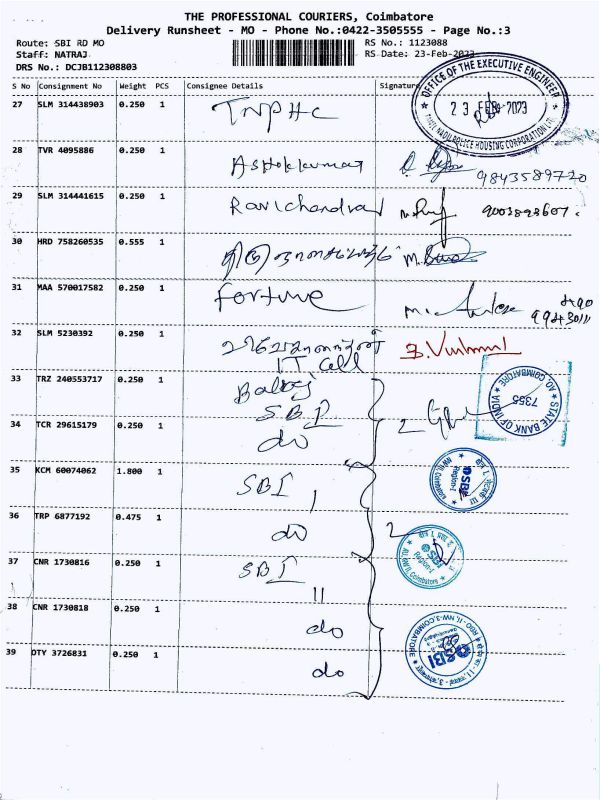 THE PROFESSIONAL COURIERS, Coimbatore
Delivery Runsheet - MO - Phone No.:0422-3505555 - Page No.:3
Route: SBI RD MO RS No.: 1123088
Staff: NATRAJ RS Date: 23-Feb-2023
DRS No.: DCJB112308803
S No Consignment No Weight PCS Consignee Details Signature
OFFICE OF THE EXECUTIVE ENGINEER
23 FEB 2023
TAMIL NADU POLICE HOUSING CORPORATION LTD
27 SLM 314438903 0.250 1 TNPHC
28 TVR 4095886 0.250 1 Ashokkumar
9843589720
29 SLM 314441615 0.250 1 Ravichandran
30 HRD 758260535 0.555 1
31 MAA 570017582 0.250 1 Fortune
32 SLM 5230392 0.250 1
IT Cell
33 TRZ 240553717 0.250 1 Balaj
SBI
STATE BANK OF INDIA
7355
AO, COIMBATORE
34 TCR 29615179 0.250 1 do
2
35 KCM 60074062 1.800 1 SBI I
SBI
Region-I
36 TRP 6877192 0.475 1 do
2
SBI
Region-I
37 CNR 1730816 0.250 1 SBI
II
38 CNR 1730818 0.250 1 do
SBI
RBO - II, NW-3, COIMBATORE
39 OTY 3726831 0.250 1 do